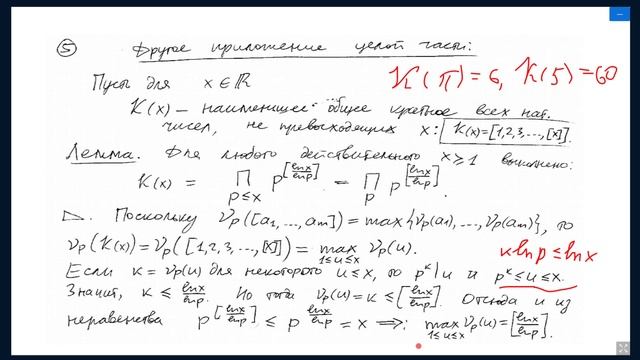 ⑤ Другое приложение целой части:
Пусть для x ∈ ℝ
K(π) = 6, K(5) = 60
K(x) – наименьшее общее кратное всех нат.
чисел, не превосходящих x: K(x)=[1,2,3,...,[x]].
Лемма. Для любого действительного x ≥ 1 выполнено:
K(x) = ∏_{p≤x} p^{[ln x / ln p]} = ∏_p p^{[ln x / ln p]}.
▷. Поскольку ν_p([a_1,...,a_m]) = max{ν_p(a_1),...,ν_p(a_m)}, то
ν_p(K(x)) = ν_p([1,2,3,...,[x]]) = max_{1≤u≤x} ν_p(u).
k ln p ≤ ln x
Если k = ν_p(u) для некоторого u ≤ x, то p^k | u и p^k ≤ u ≤ x.
Значит, k ≤ ln x / ln p. Но тогда ν_p(u) = k ≤ [ln x / ln p]. Отсюда и из
неравенства p^{[ln x / ln p]} ≤ p^{ln x / ln p} = x ⟹: max_{1≤u≤x} ν_p(u) = [ln x / ln p].